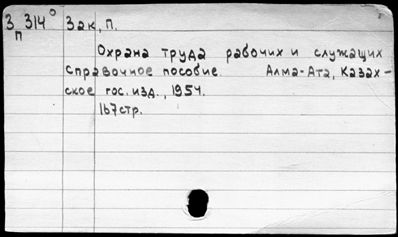 З 314° Зак, П.
п
Охрана труда рабочих и служащих
Справочное пособие. Алма-Ата, Казах-
ское гос. изд., 1954.
167стр.